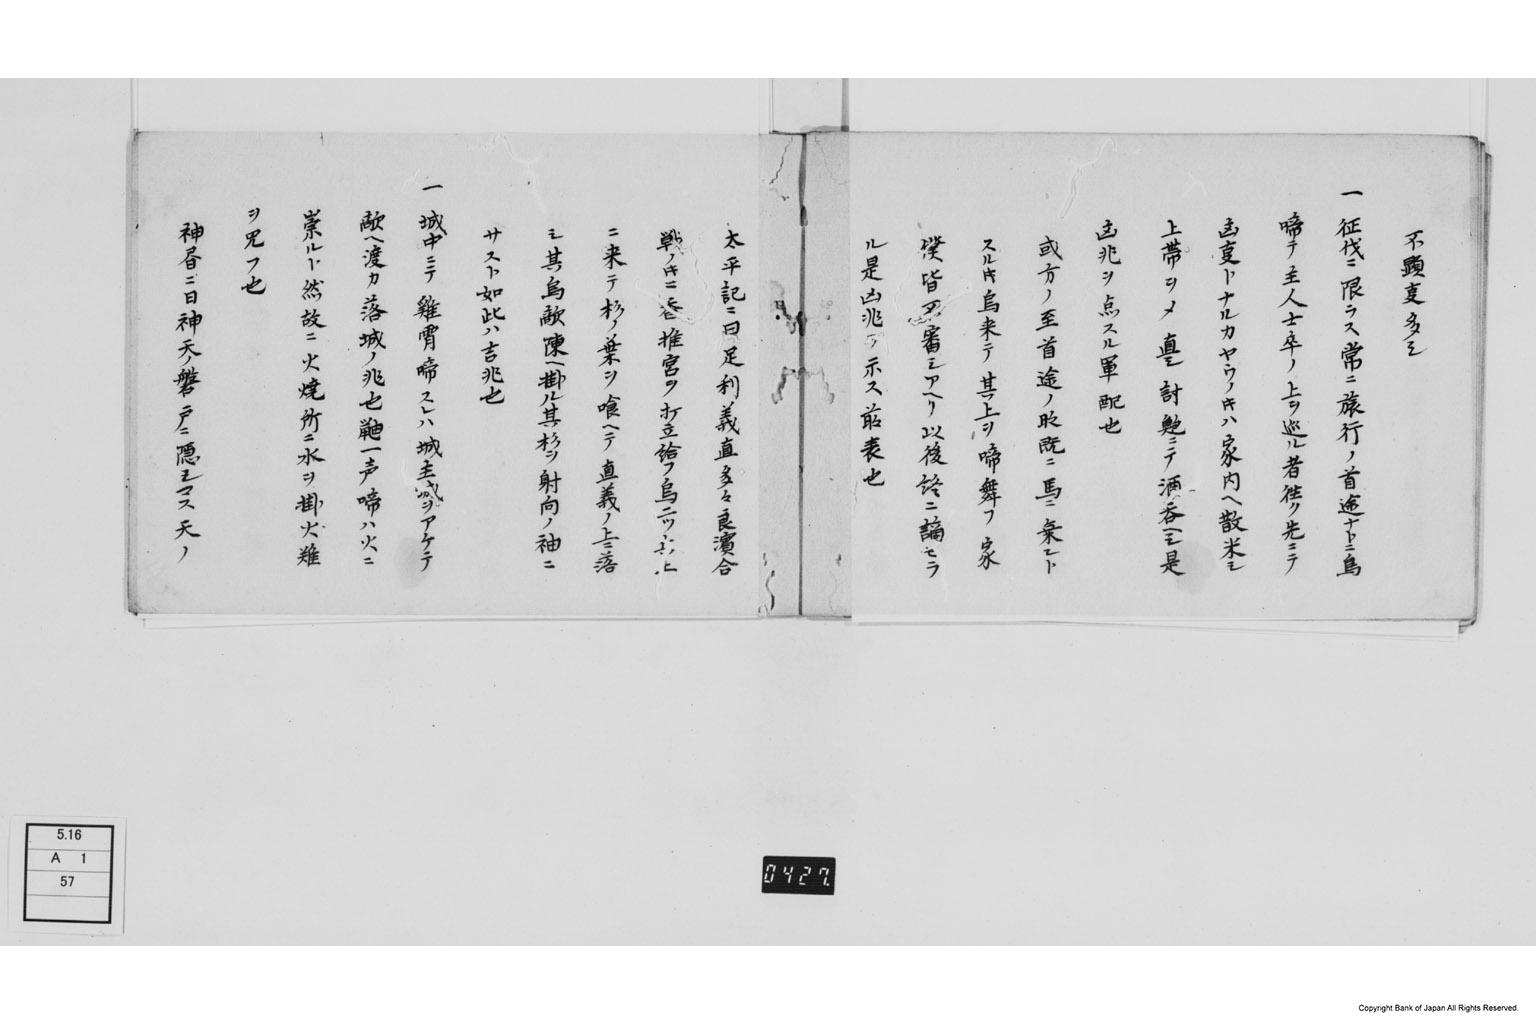 不顕叓多シ
一 征伐ニ限ラス常ニ旅行ノ首途ナトニ烏
啼テ主人士卒ノ上ヲ巡ル者往ク先ニテ
凶叓トナルカヤウノ𪜈ハ家内ヘ散米シ
上帯ヲシメ直シ討鮑ニテ酒ヲ呑ヘシ是
凶兆ヲ点スル軍配也
或方ノ至首途ノ時既ニ馬ニ乗ント
スル𪜈烏来テ其上ヲ啼舞フ家
僕皆不審シアヘリ以後終ニ謫セラ
ル是凶兆ヲ示ス前表也
太平記ニ曰足利義直多々良濱合
戦ノ𪜈ニ香椎宮ヲ打立給フ烏二ツ
ニ来テ杉ノ葉ヲ喰ヘテ直義ノ上ニ落
シ其烏敵陳ヘ掛ル其杉ヲ射向ノ袖ニ
サスト如此ハ吉兆也
一 城中ニテ雞宵啼スレハ城主城ヲアケテ
敵ヘ渡カ落城ノ兆也鼬一声啼ハ火ニ
崇ルト然故ニ火焼所ニ水ヲ掛火難
ヲ咒フ也
神昏ニ日神天ノ磐戸ニ隠シマス天ノ
5.16
A 1
57
0427
Copyright Bank of Japan All Rights Reserved.